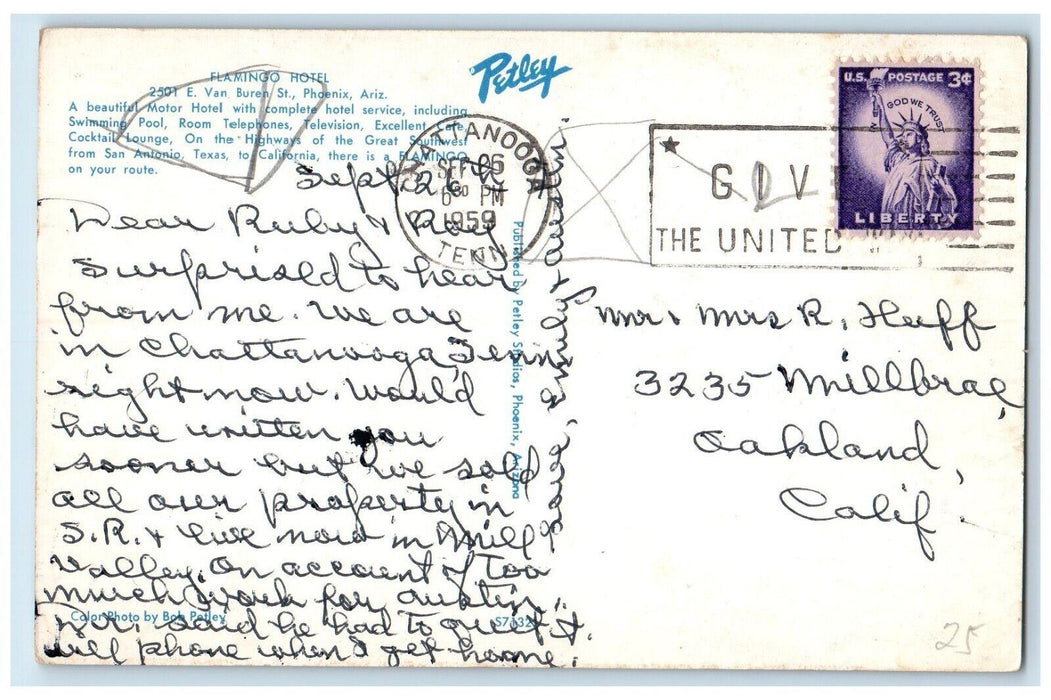 FLAMINGO HOTEL
2501 E. Van Buren St., Phoenix, Ariz.
A beautiful Motor Hotel with complete hotel service, including
Swimming Pool, Room Telephones, Television, Excellent Cafe,
Cocktail Lounge, On the Highways of the Great Southwest
from San Antonio, Texas, to California, there is a FLAMINGO
on your route.
Petley
CHATTANOOGA
SEP 26
6 30 PM
1959
TENN.
GIV
THE UNITED W
U.S. POSTAGE 3¢
IN GOD WE TRUST
LIBERTY
Sept. 26th
Dear Ruby & Roy
Surprised to hear
from me. We are
in Chattanooga Tenn
right now. Would
have written you
sooner but we sold
all our property in
S.R. & live now in Mill
Valley. On account of too
much work for Austin.
Dr. said he had to quit it.
Will phone when I get home.
Love, Emily & Austin.
Published by Petley Studios, Phoenix, Arizona
Mr. Mrs R. Huff
3235 Millbrae,
Oakland,
Calif.
Color Photo by Bob Petley
S7132
25